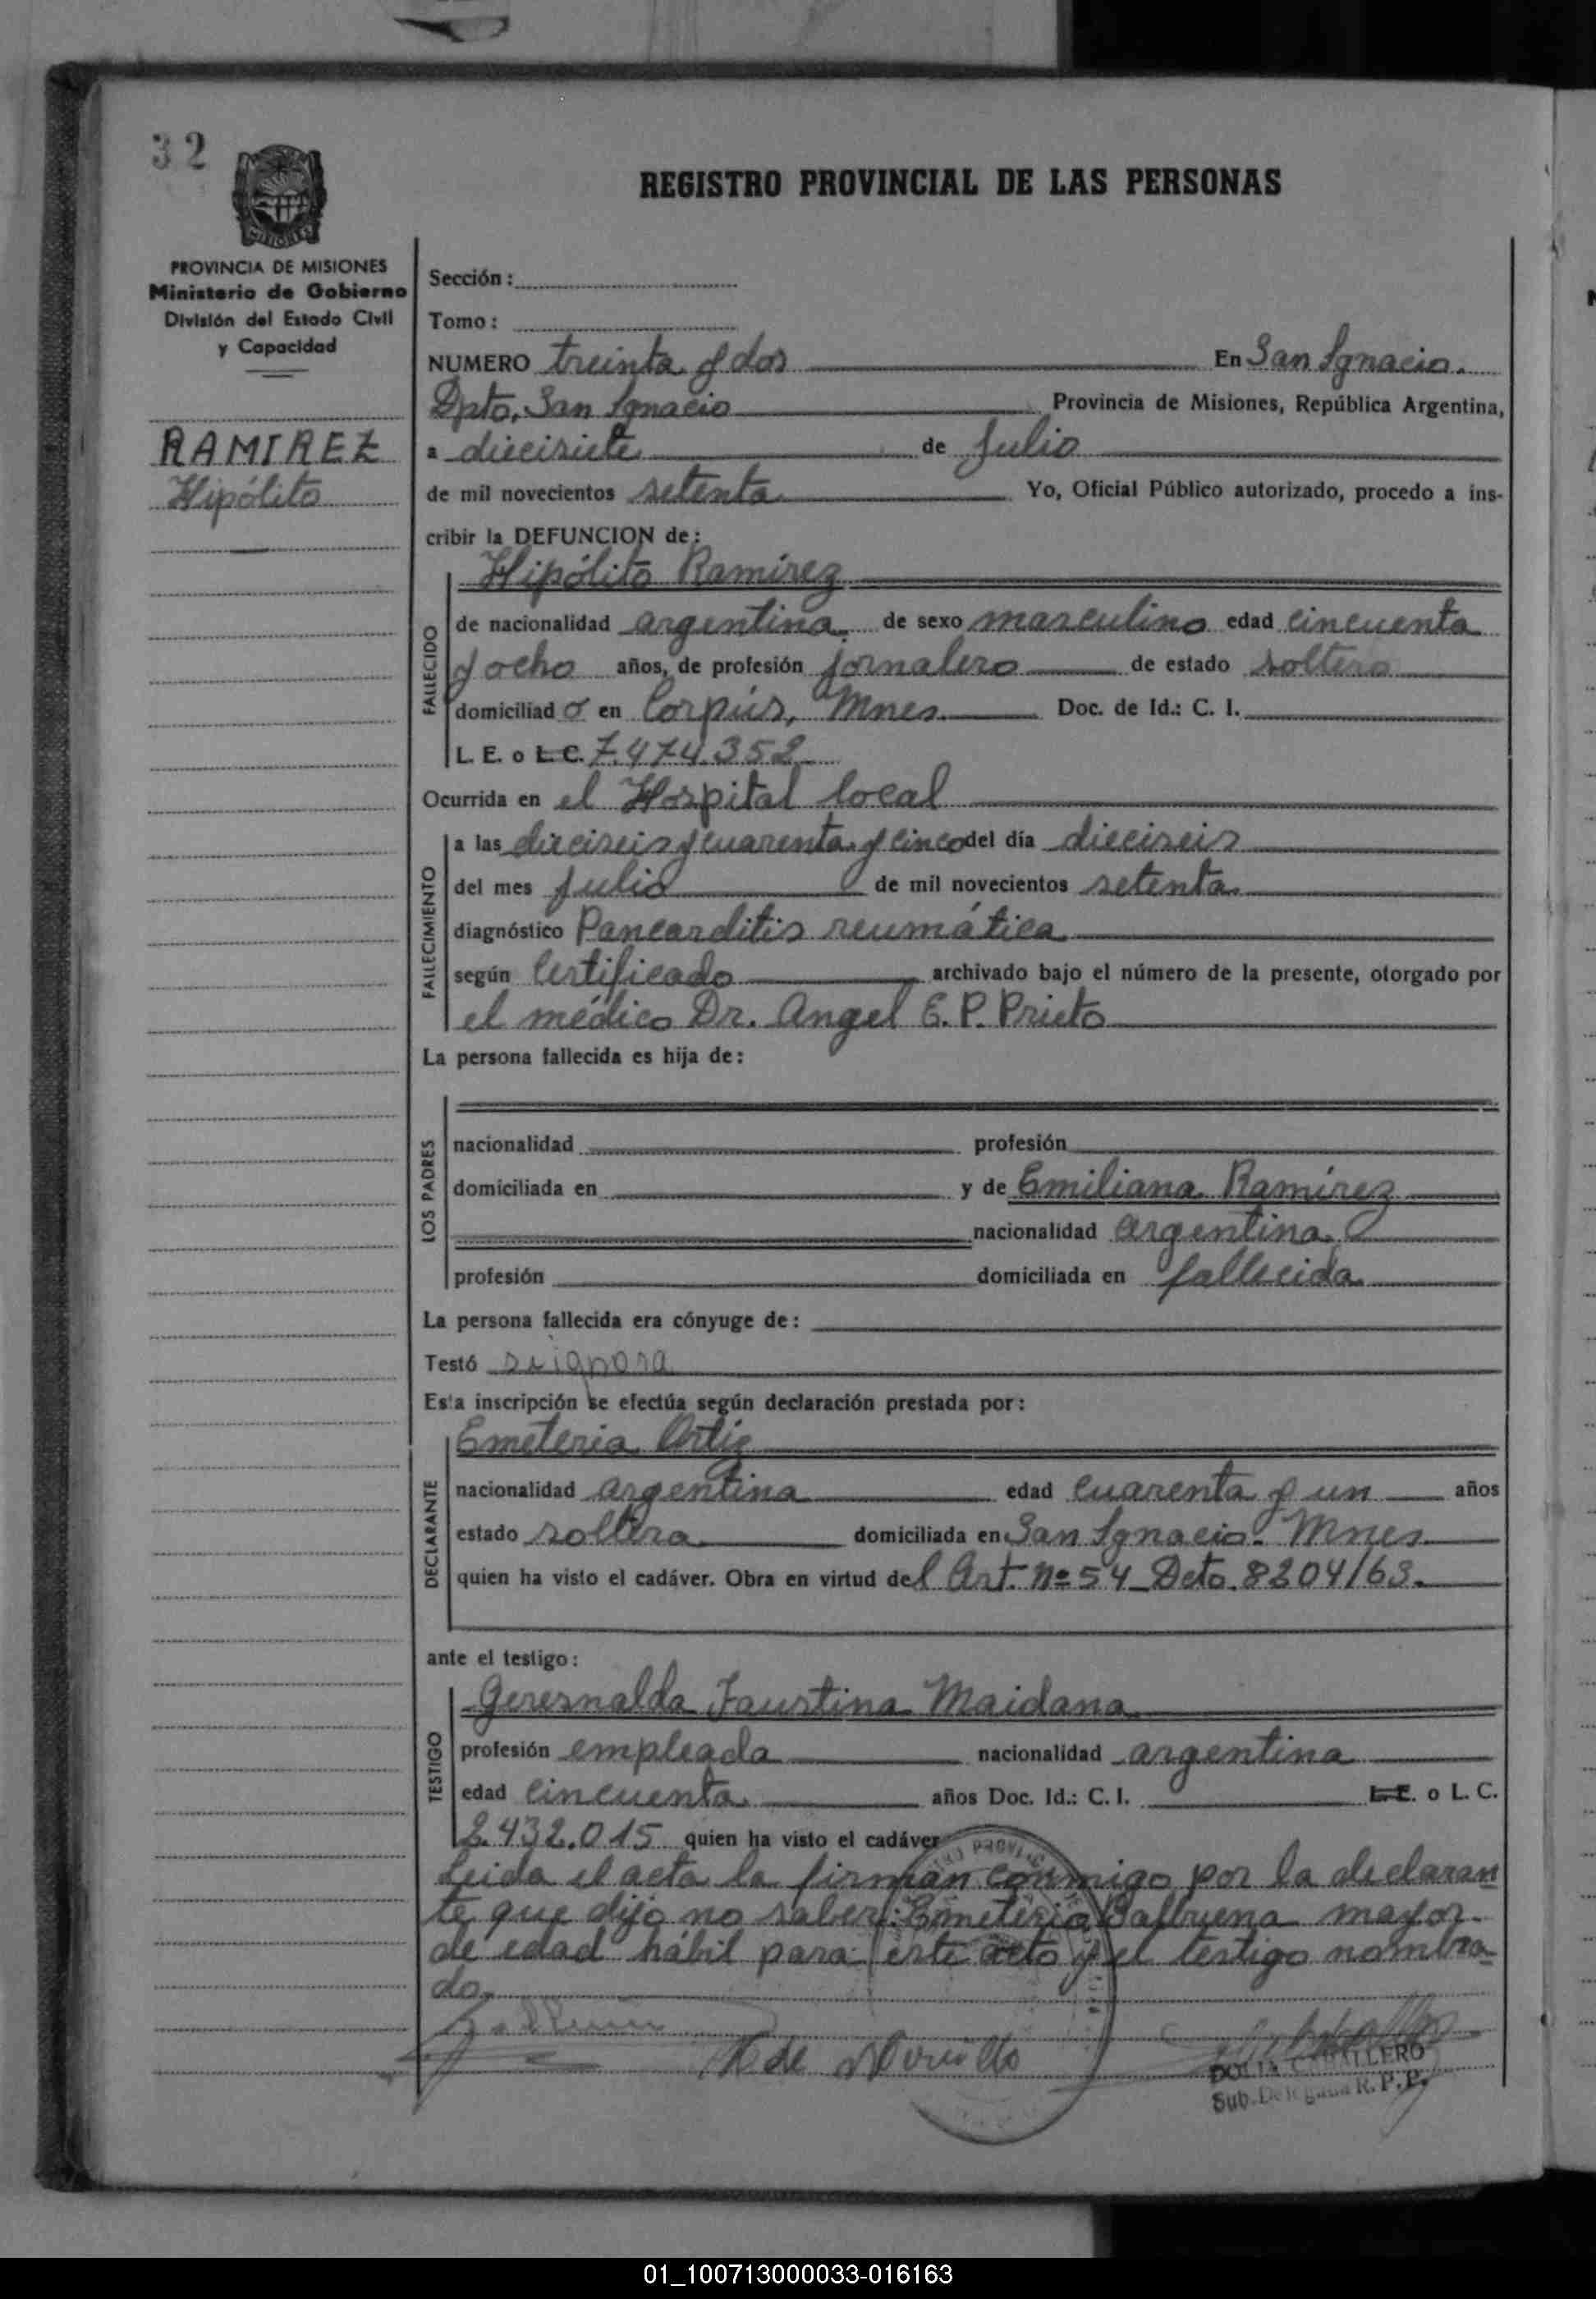 32
REGISTRO PROVINCIAL DE LAS PERSONAS
MISIONES
PROVINCIA DE MISIONES
Ministerio de Gobierno
División del Estado Civil
y Capacidad
RAMIREZ
Hipólito
Sección:
Tomo:
NUMERO treinta y dos En San Ignacio.
Dpto. San Ignacio Provincia de Misiones, República Argentina,
a dieciseite de Julio
de mil novecientos setenta Yo, Oficial Público autorizado, procedo a ins-
cribir la DEFUNCION de:
Hipólito Ramírez
FALLECIDO
de nacionalidad argentina. de sexo masculino edad cincuenta
y ocho años, de profesión jornalero de estado soltero
domiciliado en Corpús, Mnes. Doc. de Id.: C. I.
L. E. o L.C. 7.474.352
Ocurrida en el Hospital local
FALLECIMIENTO
a las dieciseis y cuarenta y cinco del día dieciseis
del mes Julio de mil novecientos setenta.
diagnóstico Pancarditis reumática
según Certificado archivado bajo el número de la presente, otorgado por
el médico Dr. Angel E. P. Prieto
La persona fallecida es hija de:
LOS PADRES
nacionalidad profesión
domiciliada en y de Emiliana Ramírez
nacionalidad argentina.
profesión domiciliada en fallecida
La persona fallecida era cónyuge de:
Testó se ignora
Esta inscripción se efectúa según declaración prestada por:
DECLARANTE
Emeteria Ortiz
nacionalidad argentina edad cuarenta y un años
estado soltera domiciliada en San Ignacio. Mnes.
quien ha visto el cadáver. Obra en virtud del Art. Nº 54 Dcto. 8204/63.
ante el testigo:
TESTIGO
Geresnalda Faustina Maidana
profesión empleada nacionalidad argentina
edad cincuenta años Doc. Id.: C. I. L.E. o L. C.
2.432.015 quien ha visto el cadáver
Leida el acta la firman conmigo por la declaran
te que dijo no saber: Emeterio Balbuena mayor
de edad hábil para este acto y el testigo nombra
do.
de
CABALLERO
Sub-Delegada R.P.P.
01_100713000033-016163